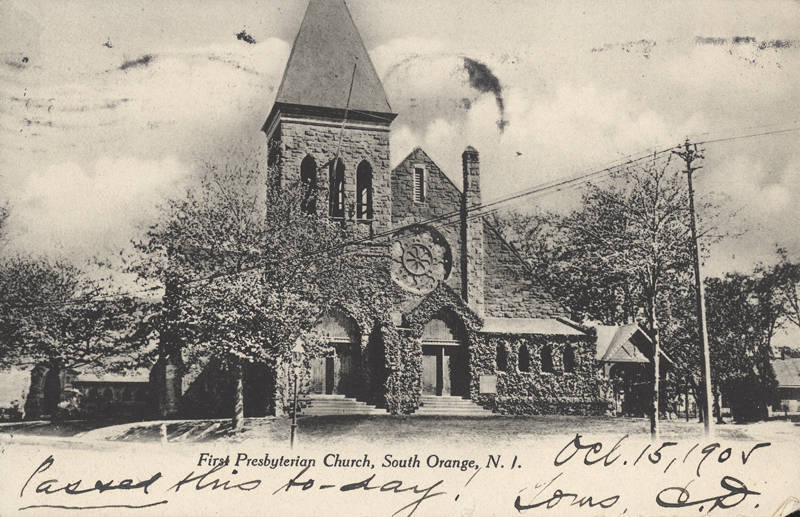 First Presbyterian Church, South Orange, N. J.
Oct. 15, 1905
Passed this to-day!
Yours, C.D.